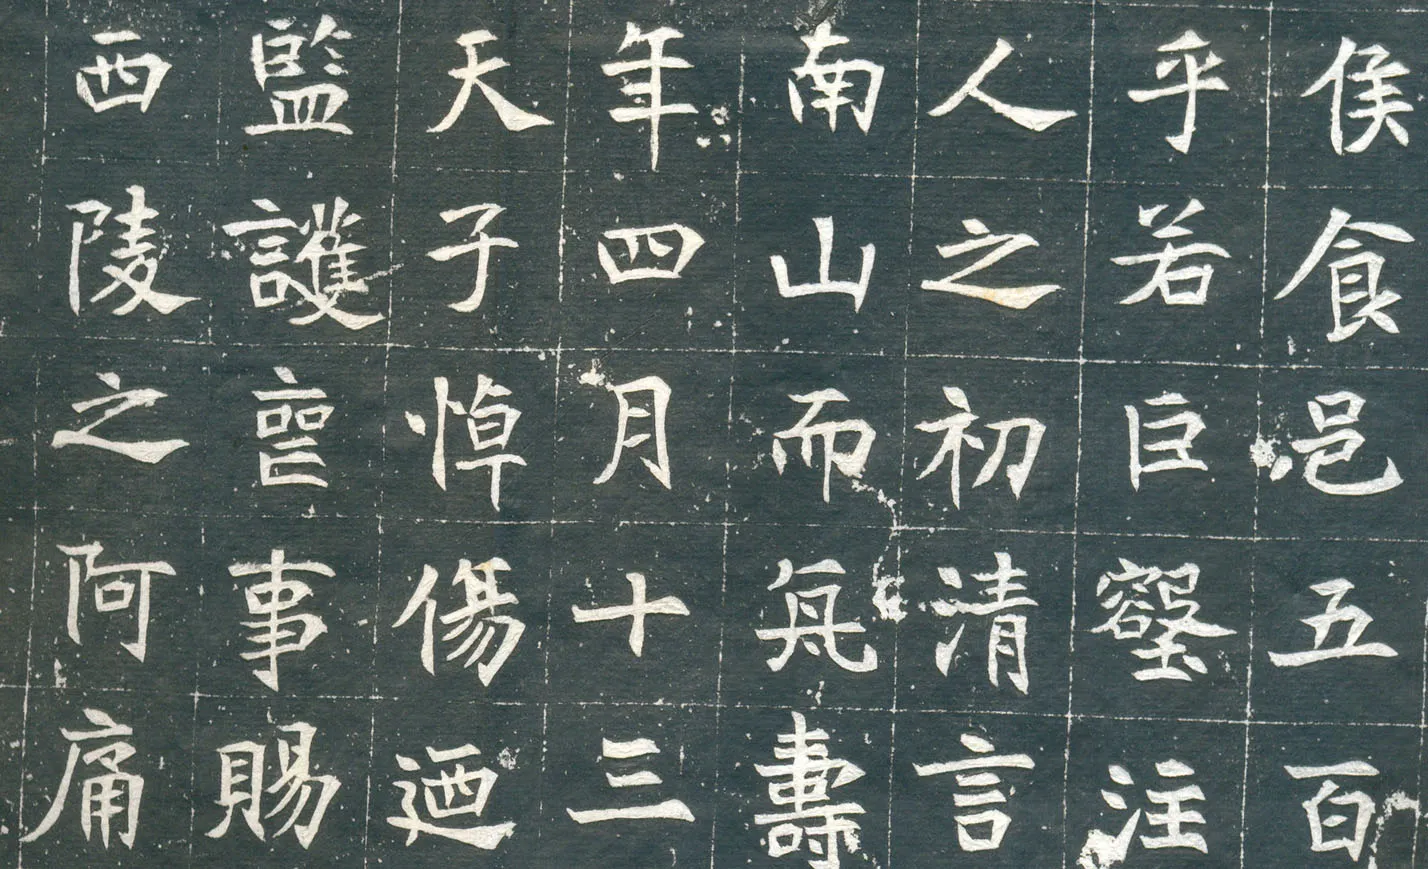 侯食邑五百
乎若巨壑注
人之初清言
南山而壽
年四月十三
天子悼傷迺
監護喪事賜
西陵之阿痛